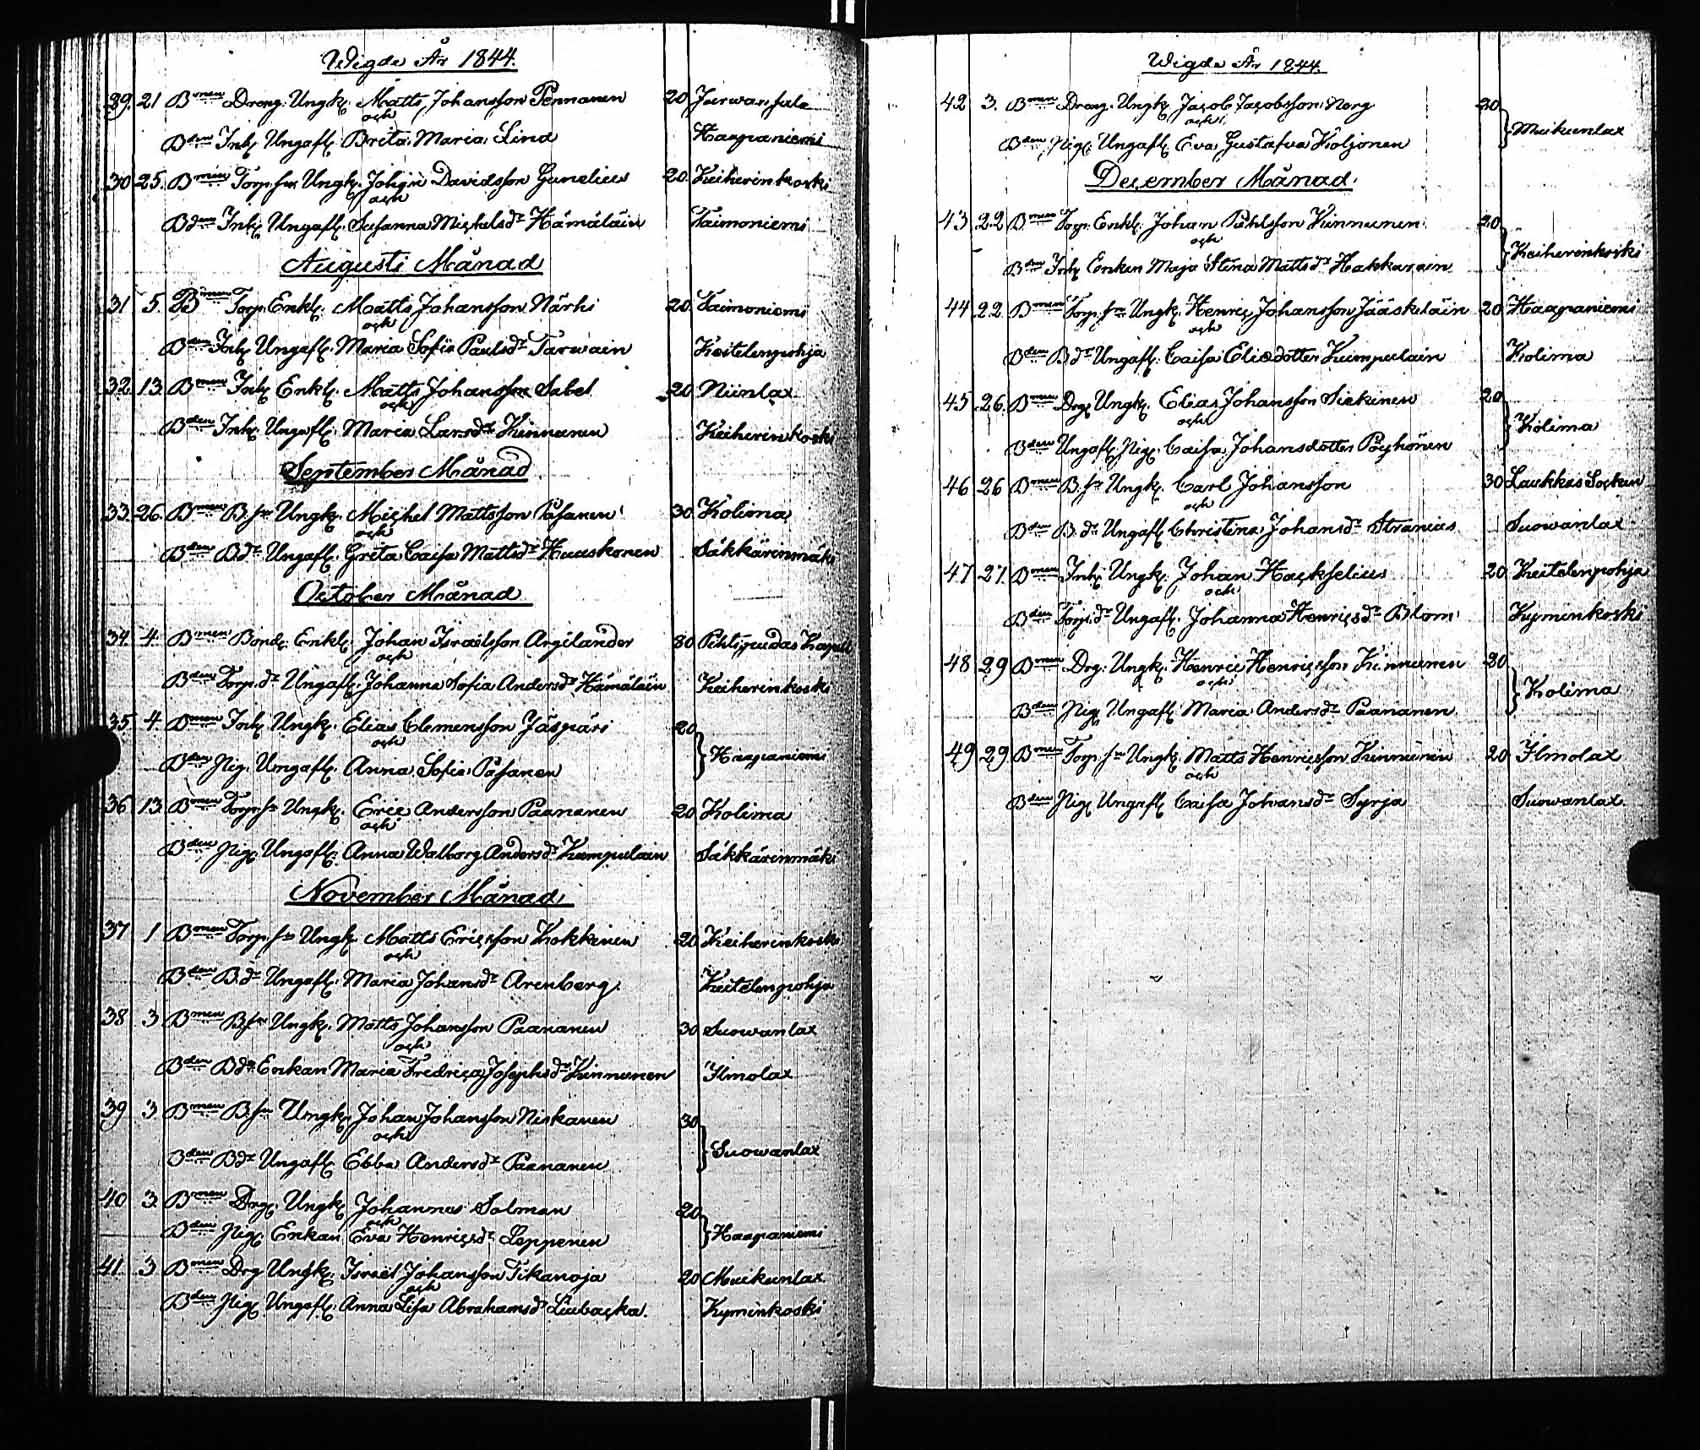 Wigde År 1844.
29. 21 Bmen Dreng. Ungk. Matts Johansson Pennanen 20 Jaerwansula
och
Bden Inh. Ungafl. Brita Maria Lind Haapaniemi
30 25. Bmen Torp. sn Ungk. Johan Davidsson Gunelius 20. Keiherinkoski
och
Bden Inh. Ungafl. Susanna Michelsdr Hämäläin Taimoniemi
Augusti Månad
31 5. Bmen Torp. Enkl. Matts Johansson Närhi 20. Taimoniemi
och
Bden Inh. Ungafl. Maria Sofia Paulsdr Tarwain Keitelenpohja
32. 13. Bmen Inh. Enkl. Matts Johansson Sabel 20 Niinlax
och
Bden Inh. Ungafl. Maria Larsdr Kinnunen Keiherinkoski
September Månad
33. 26. Bmen B. sn Ungk. Michel Mattsson Pasanen 30 Kolima
och
Bden B. dr Ungafl. Greta Caisa Mattsdr Huuskonen Säkkärinmäki
October Månad
34. 4. Bmen Bond. Enkl. Johan Israelsson Argilander 30 Pihlipudas Kapell
och
Bden Torp. dr Ungafl. Johanna Sofia Andersdr Hämäläin Keiherinkoski
35. 4. Bmen Inh. Ungk. Elias Clemensson Jäspäri 20
och
Bden Pig. Ungafl. Anna Sofia Pasanen } Haapaniemi
36 13. Bmen Torp. sn Ungk. Eric Andersson Paananen 20 Kolima
och
Bden Pig. Ungafl. Anna Walborg Andersdr Kumpulain Säkkärinmäki
November Månad
37 1 Bmen Torp. sn Ungk. Matts Ericsson Kokkinen 20 Keiherinkoski
och
Bden B. dr Ungafl. Maria Johansdr Arenberg Keitelenpohja
38 3 Bmen B. sn Ungk. Matts Johansson Paananen 30 Suowanlax
och
Bden B. dr Enkan Maria Fredrica Josephsdr Kinnunen Ilmolax
39 3 Bmen B. sn Ungk. Johan Johansson Niskanen 30
och
Bden B. dr Ungafl. Ebba Andersdr Paananen } Suowanlax
40 3. Bmen Drg. Ungk. Johannes Solman 20
och
Bden Pig. Enkan Eva Henricsdr Leppenen } Haapaniemi
41. 3. Bmen Drg. Ungk. Israel Johansson Tikanoja 20 Muikunlax
och
Bden Pig. Ungafl. Anna Lisa Abrahamsdr Liubacka. Kyminkoski
Wigde År 1844.
42 3. Bmen Dreng. Ungk. Jacob Jacobsson Norg 20
och
Bden Pig. Ungafl. Eva Gustafva Koljonen } Muikunlax
December Månad.
43 22 Bmen Torp. Enkl. Johan Pehlsson Kinnunen 20
och
Bden Inh. Enkan Maja Stina Mattsdr Hakkarain } Keiherinkoski
44 22. Bmen Torp. sn Ungk. Henric Johansson Jääskeläin 20 Haapaniemi
och
Bden B. dr Ungafl. Caisa Eliedotter Kumpulain Kolima
45 26. Bmen Drg. Ungk. Elias Johansson Siekinen 20
och
Bden Ungafl. Pig. Caisa Johansdotter Pöyhönen } Kolima
46 26 Bmen B. sn Ungk. Carl Johansson 30 Laukkas Socken
och
Bden B. dr Ungafl. Christina Johansdr Stranius Suowanlax
47 27. Bmen Inh. Ungk. Johan Hackselius 20 Keitelenpohja
och
Bden Torp. dr Ungafl. Johanna Henricsdr Blom Kyminkoski
48 29 Bmen Drg. Ungk. Henric Henricsson Kinnunen 20
och
Bden Pig. Ungafl. Maria Andersdr Paananen } Kolima
49 29. Bmen Torp. sn Ungk. Matts Henricsson Kinnunen 20 Ilmolax
och
Bden Pig. Ungafl. Caisa Johansdr Syrja Suowanlax